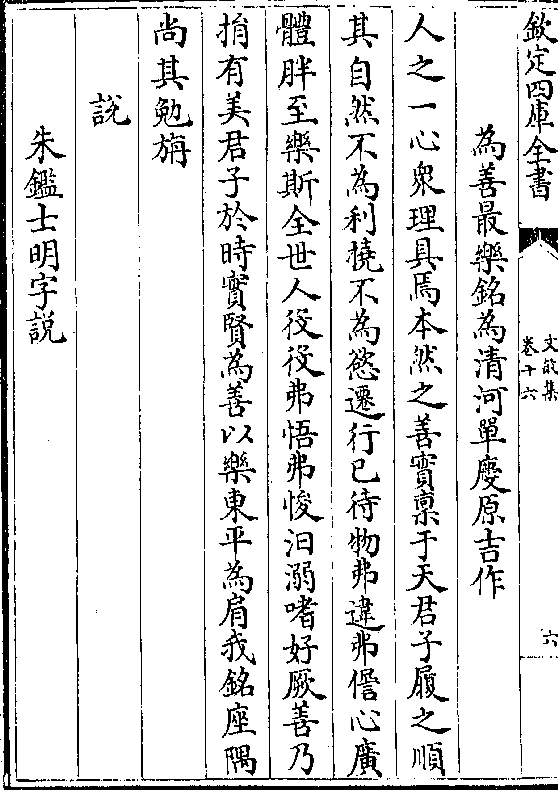 欽定四庫全書
文敏集
卷十六
六
為善最樂銘為清河單慶原吉作
人之一心衆理具焉本然之善實禀于天君子履之順
其自然不為利撓不為慾遷行已待物弗違弗僭心廣
體胖至樂斯全世人役役弗悟弗悛汩溺嗜好厥善乃
捐有美君子於時實賢為善以樂東平為肩我銘座隅
尚其勉旃
說
朱鑑士明字說